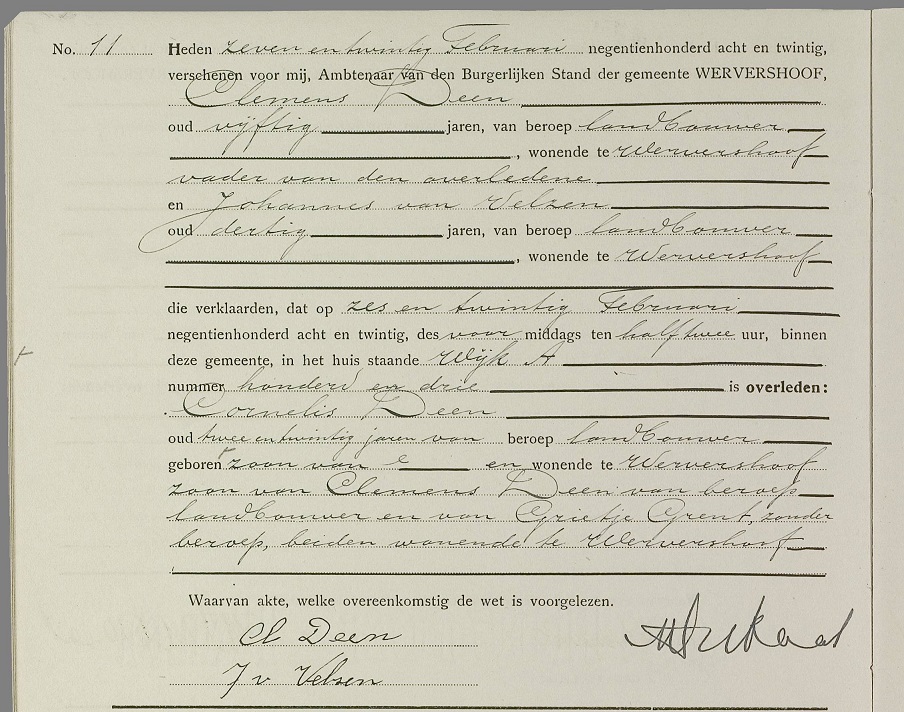 No. 11 Heden zeven en twintig Februari negentienhonderd acht en twintig,
verschenen voor mij, Ambtenaar van den Burgerlijken Stand der gemeente WERVERSHOOF,
Clemens Deen
oud vijftig jaren, van beroep landbouwer
, wonende te Wervershoof
vader van den overledene
en Johannes van Velzen
oud dertig jaren, van beroep landbouwer
, wonende te Wervershoof
die verklaarden, dat op zes en twintig Februari
negentienhonderd acht en twintig, des voor middags ten half twee uur, binnen
deze gemeente, in het huis staande Wijk A
nummer honderd en drie is overleden:
Cornelis Deen
oud twee en twintig jaren van beroep landbouwer
geboren zoon van en wonende te Wervershoof
zoon van Clemens Deen van beroep
landbouwer en van Grietje Grent, zonder
beroep, beiden wonende te Wervershoof
Waarvan akte, welke overeenkomstig de wet is voorgelezen.
Cl Deen
J v Velsen